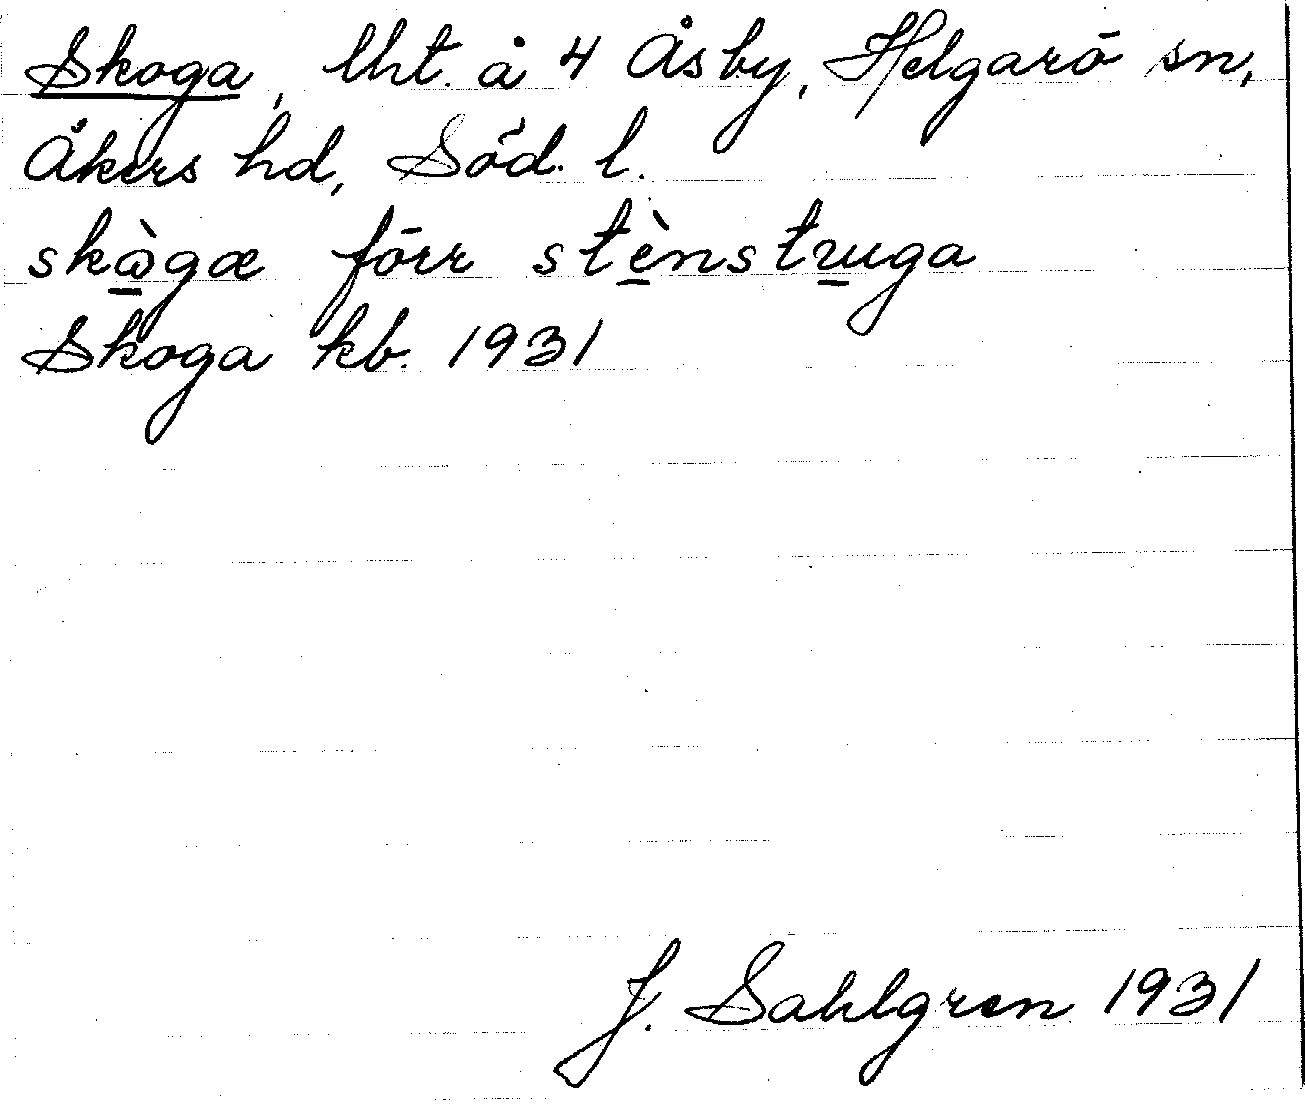 Skoga, lht. å 4 Åsby, Helgarö sn,
Åkers hd, Söd. l.
skògæ förr stènstuga
Skoga kb. 1931
J. Sahlgren 1931